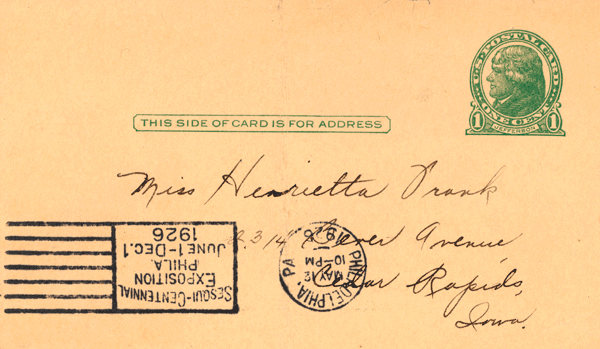 U.S. POSTAL CARD
ONE CENT
1 JEFFERSON 1
THIS SIDE OF CARD IS FOR ADDRESS
Miss Henrietta
Avenue
Cedar Rapids,
Iowa.
PHILADELPHIA, PA
MAY 12
10-PM
1926
SESQUI-CENTENNIAL
EXPOSITION
PHILA.
JUNE 1-DEC. 1
1926